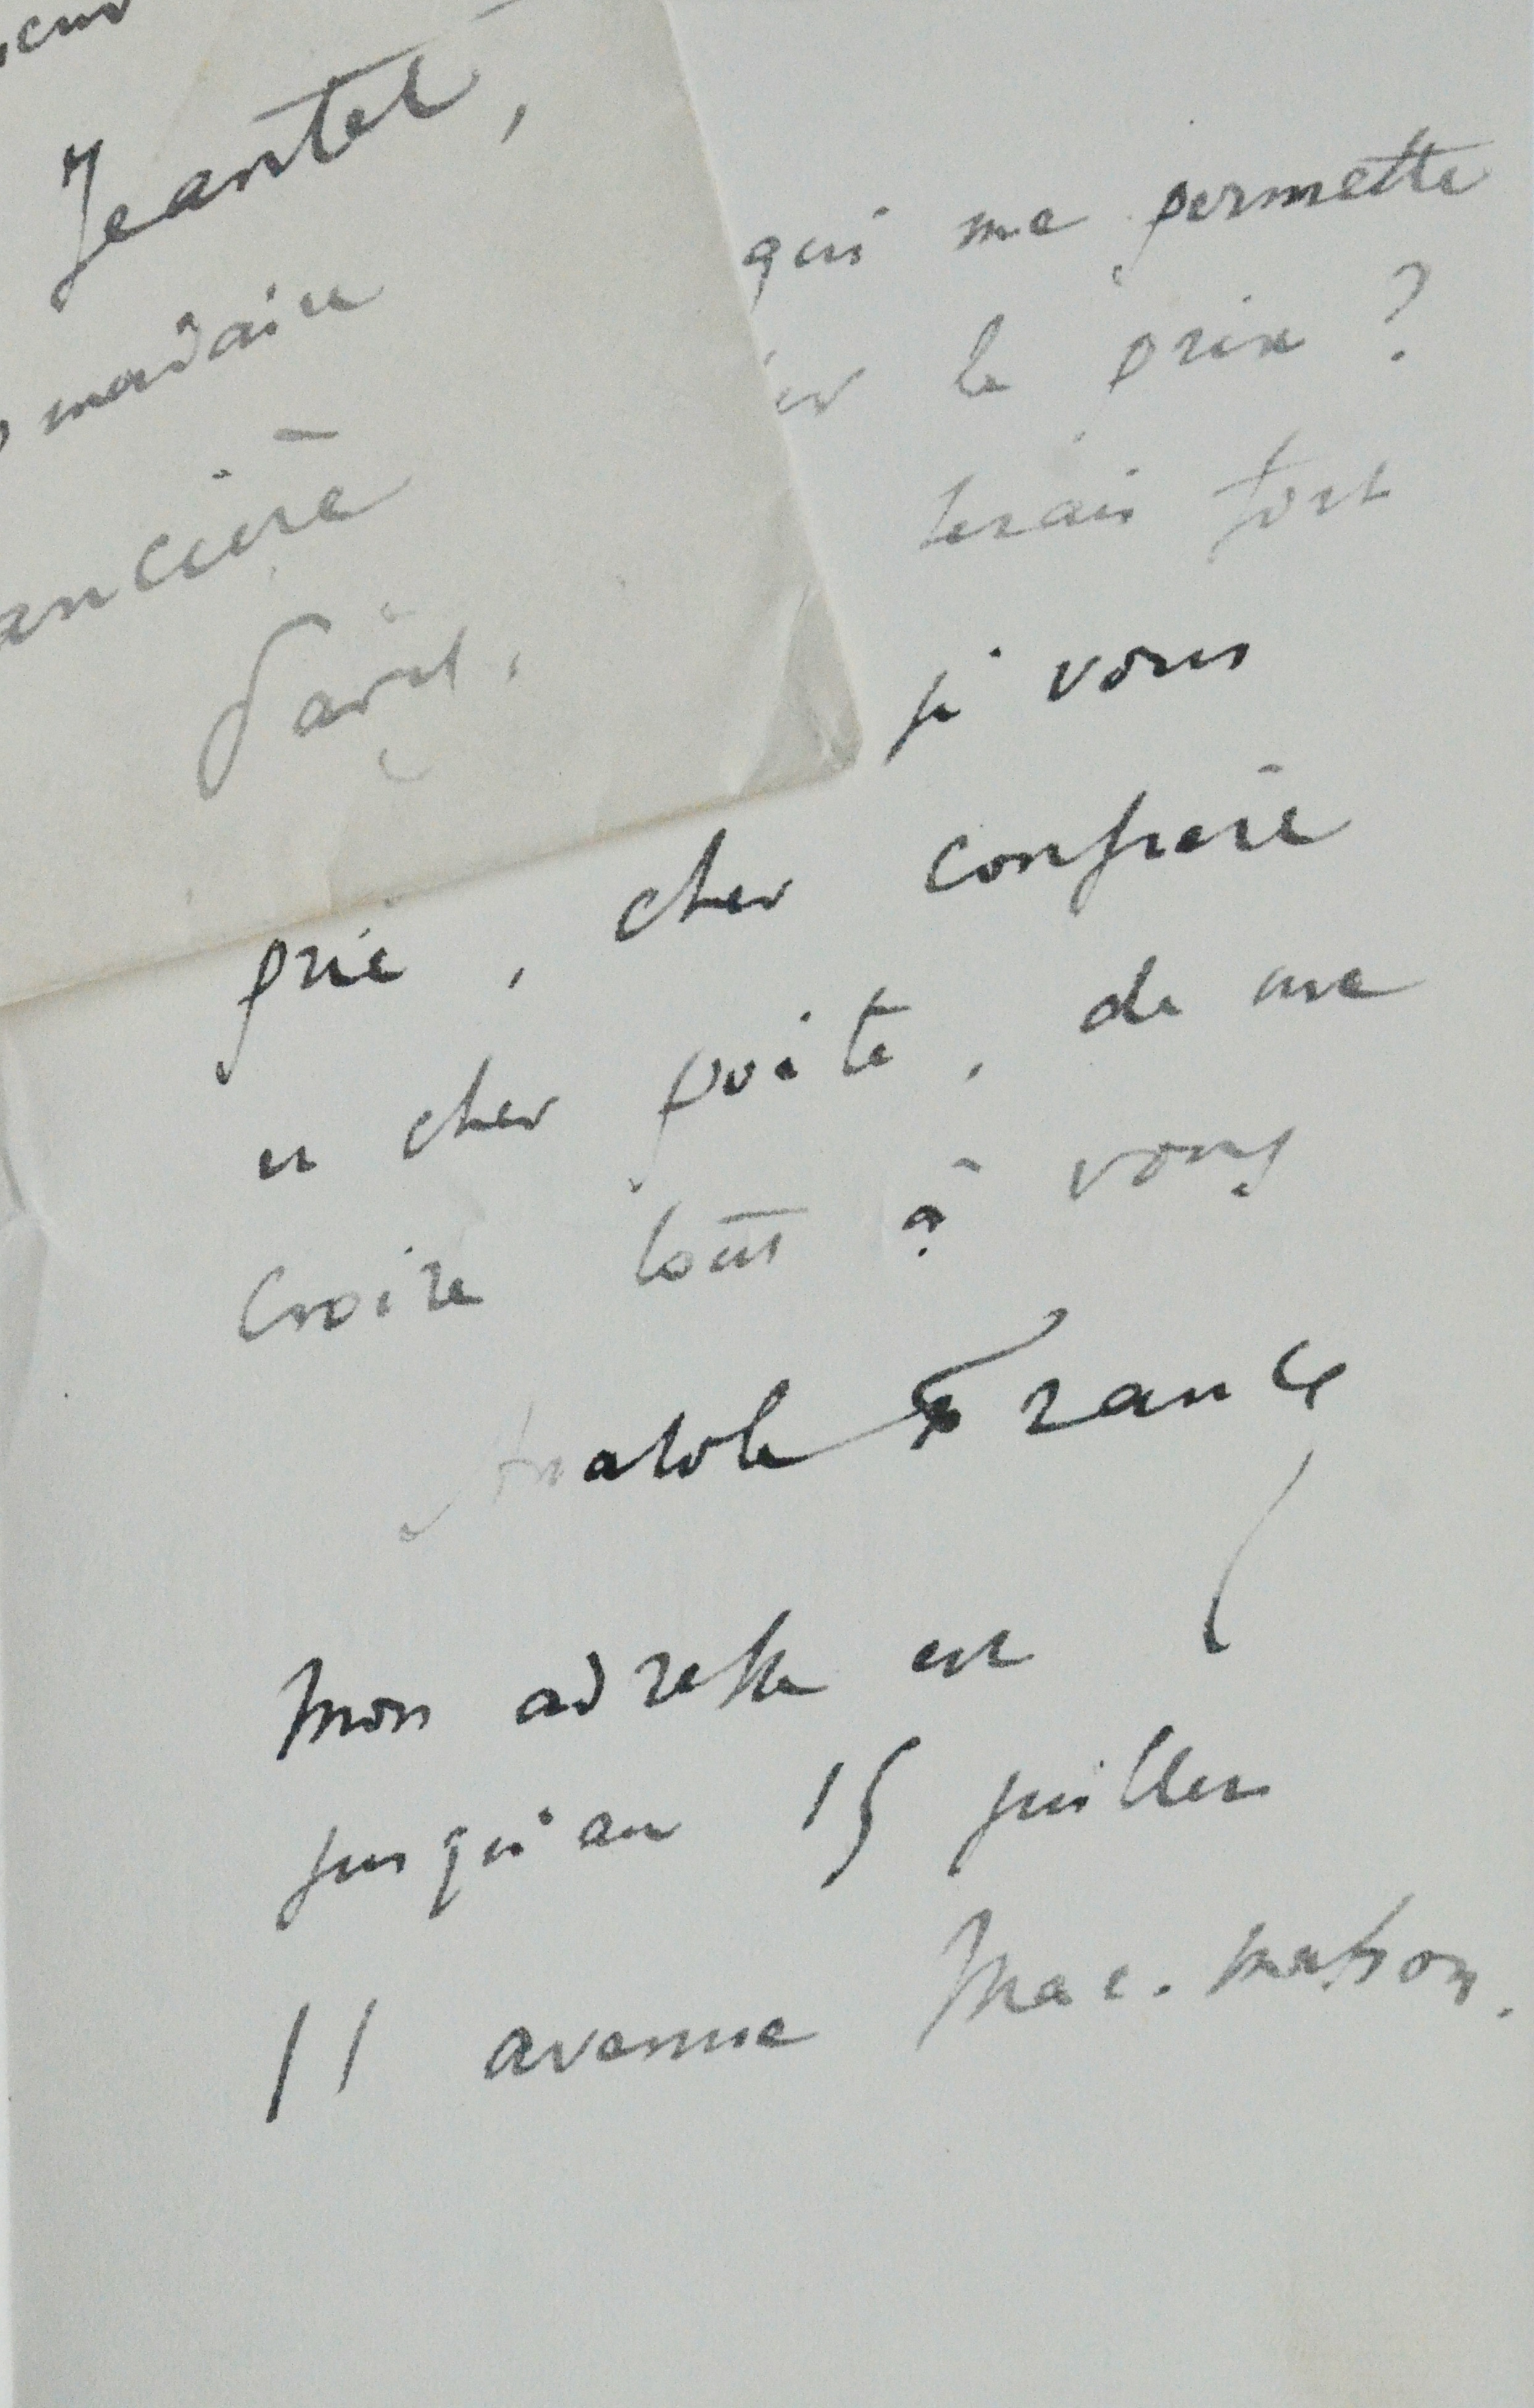 Jeantet,
madaire
ancière
Paris.
qui me permette
er le prix ?
serais fort
je vous
prie, cher confrère
et cher poète, de me
croire tout à vous
Anatole France
Mon adresse est
jusqu'au 15 juillet
11 avenue Mac-Mahon.